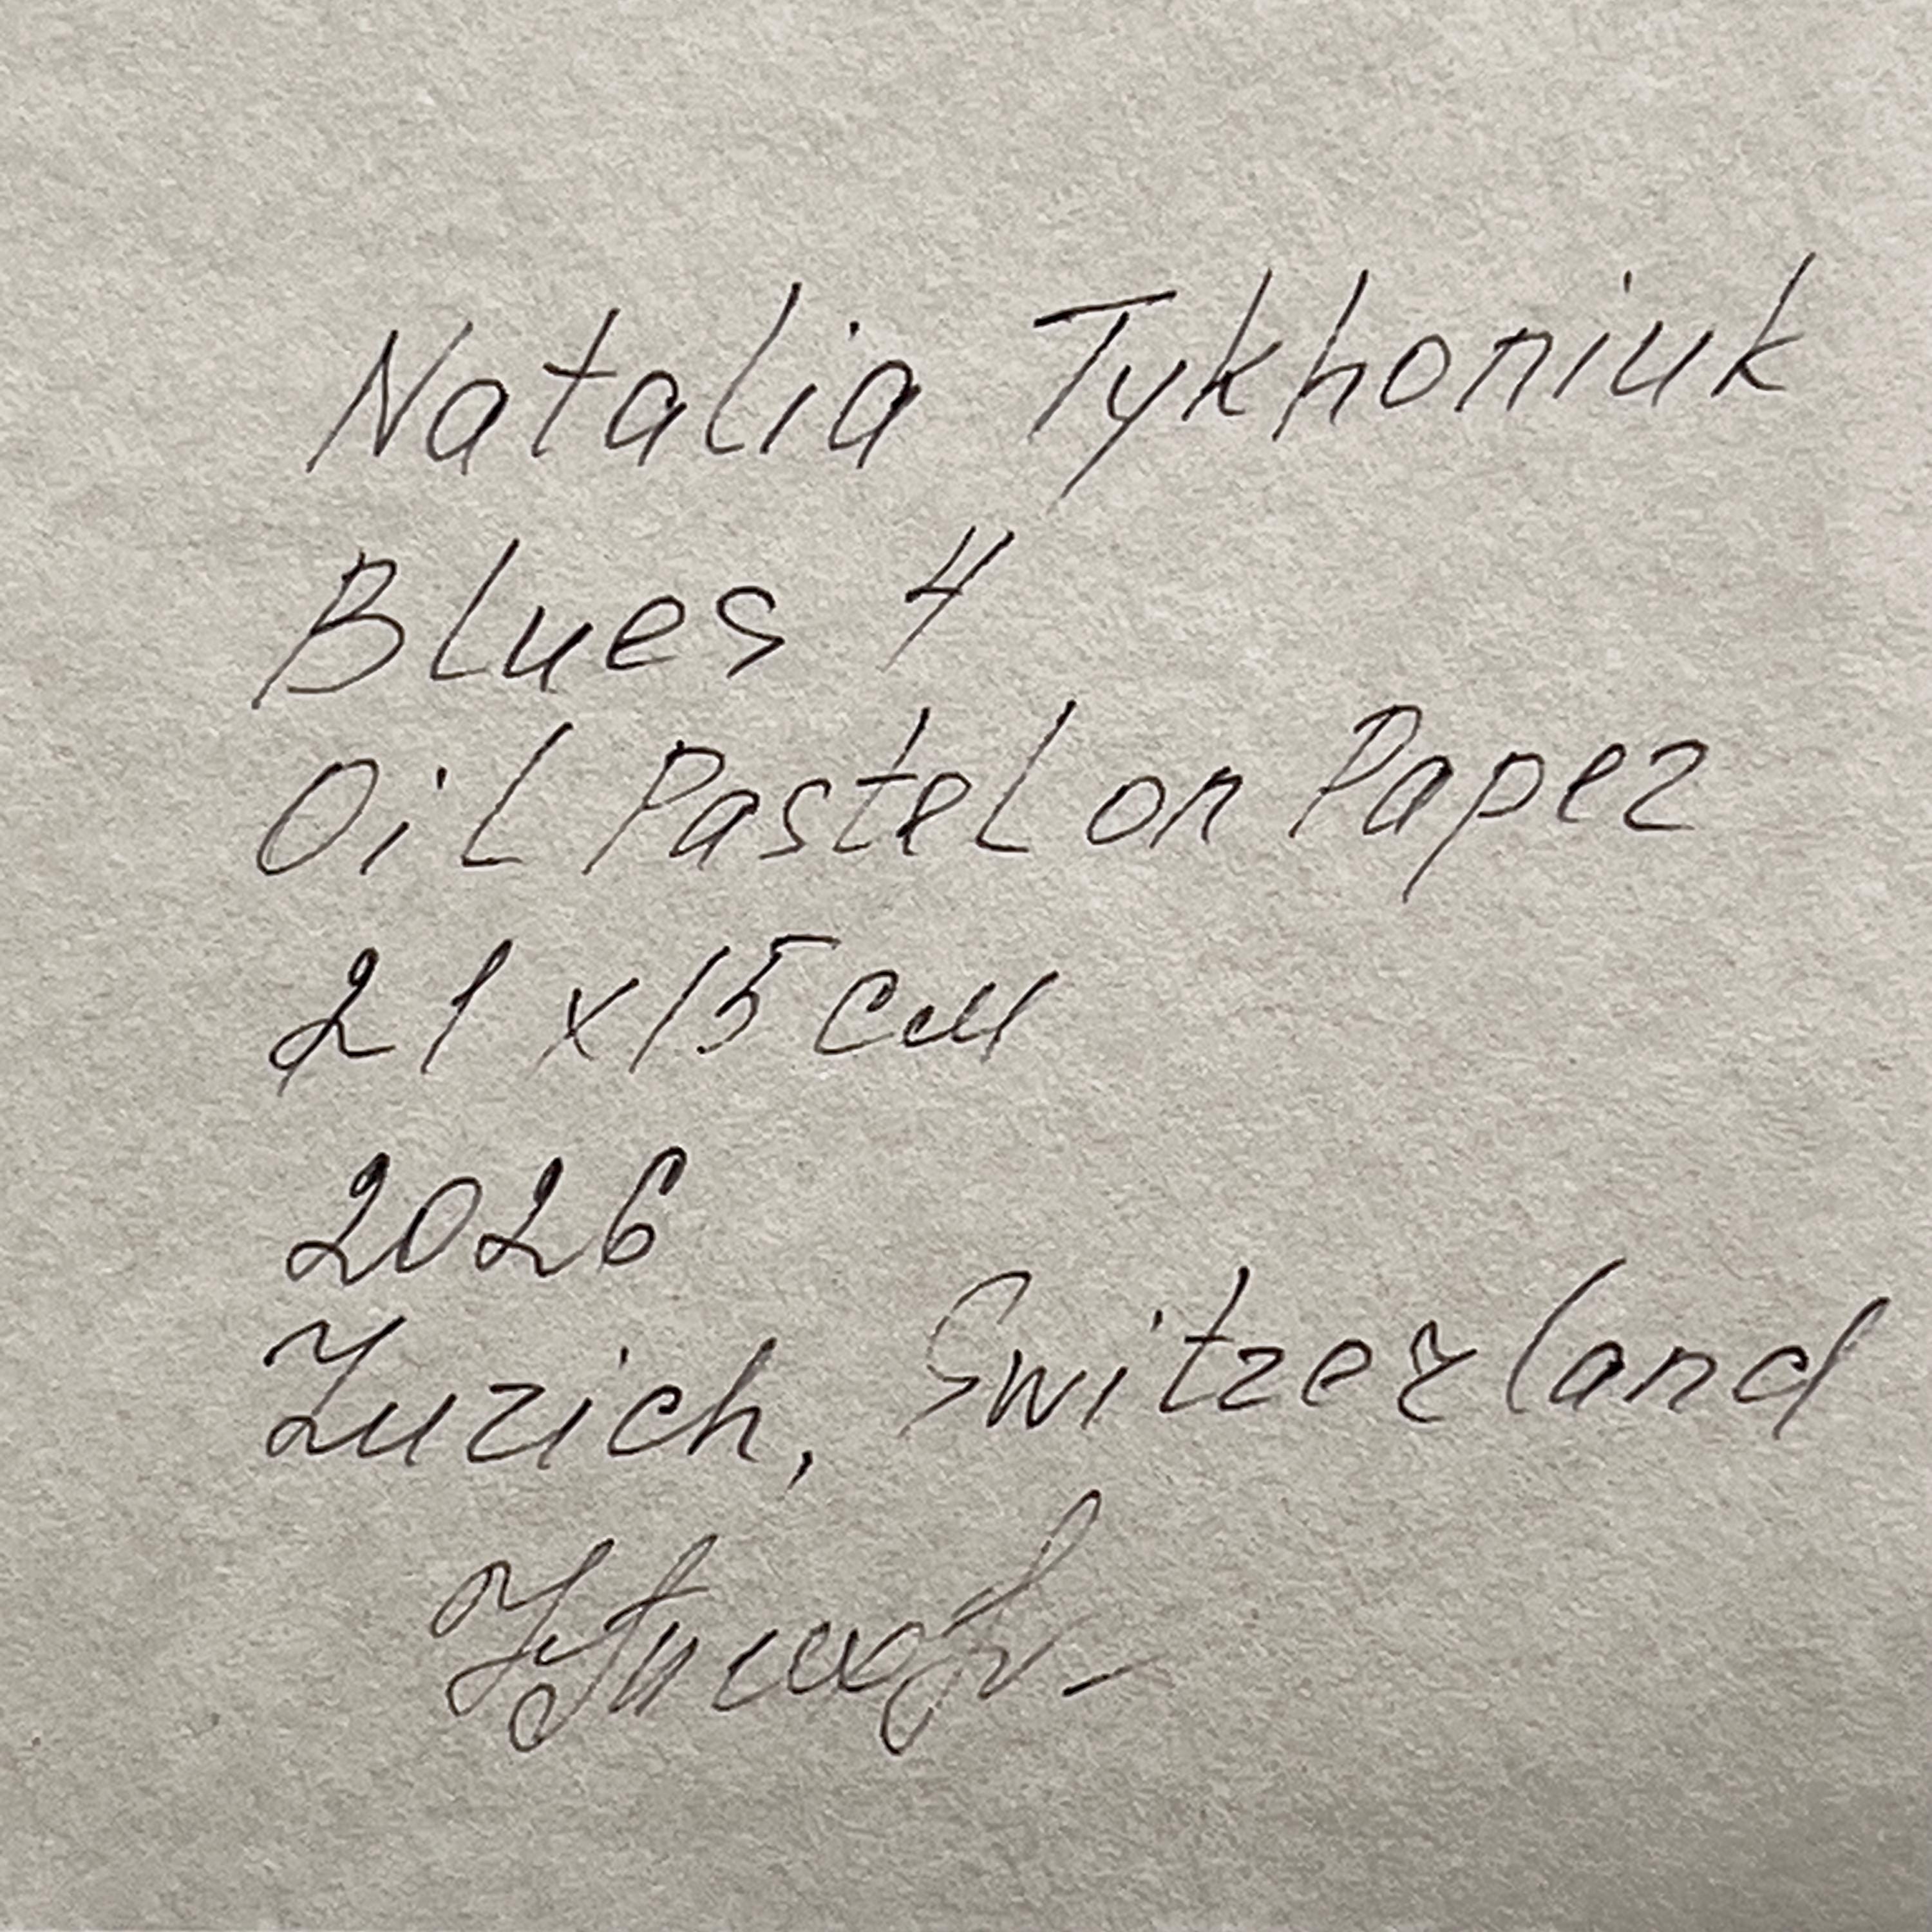 Natalia Tykhoniuk
Blues 4
Oil Pastel on Paper
21 x 15 cm
2026
Zurich, Switzerland